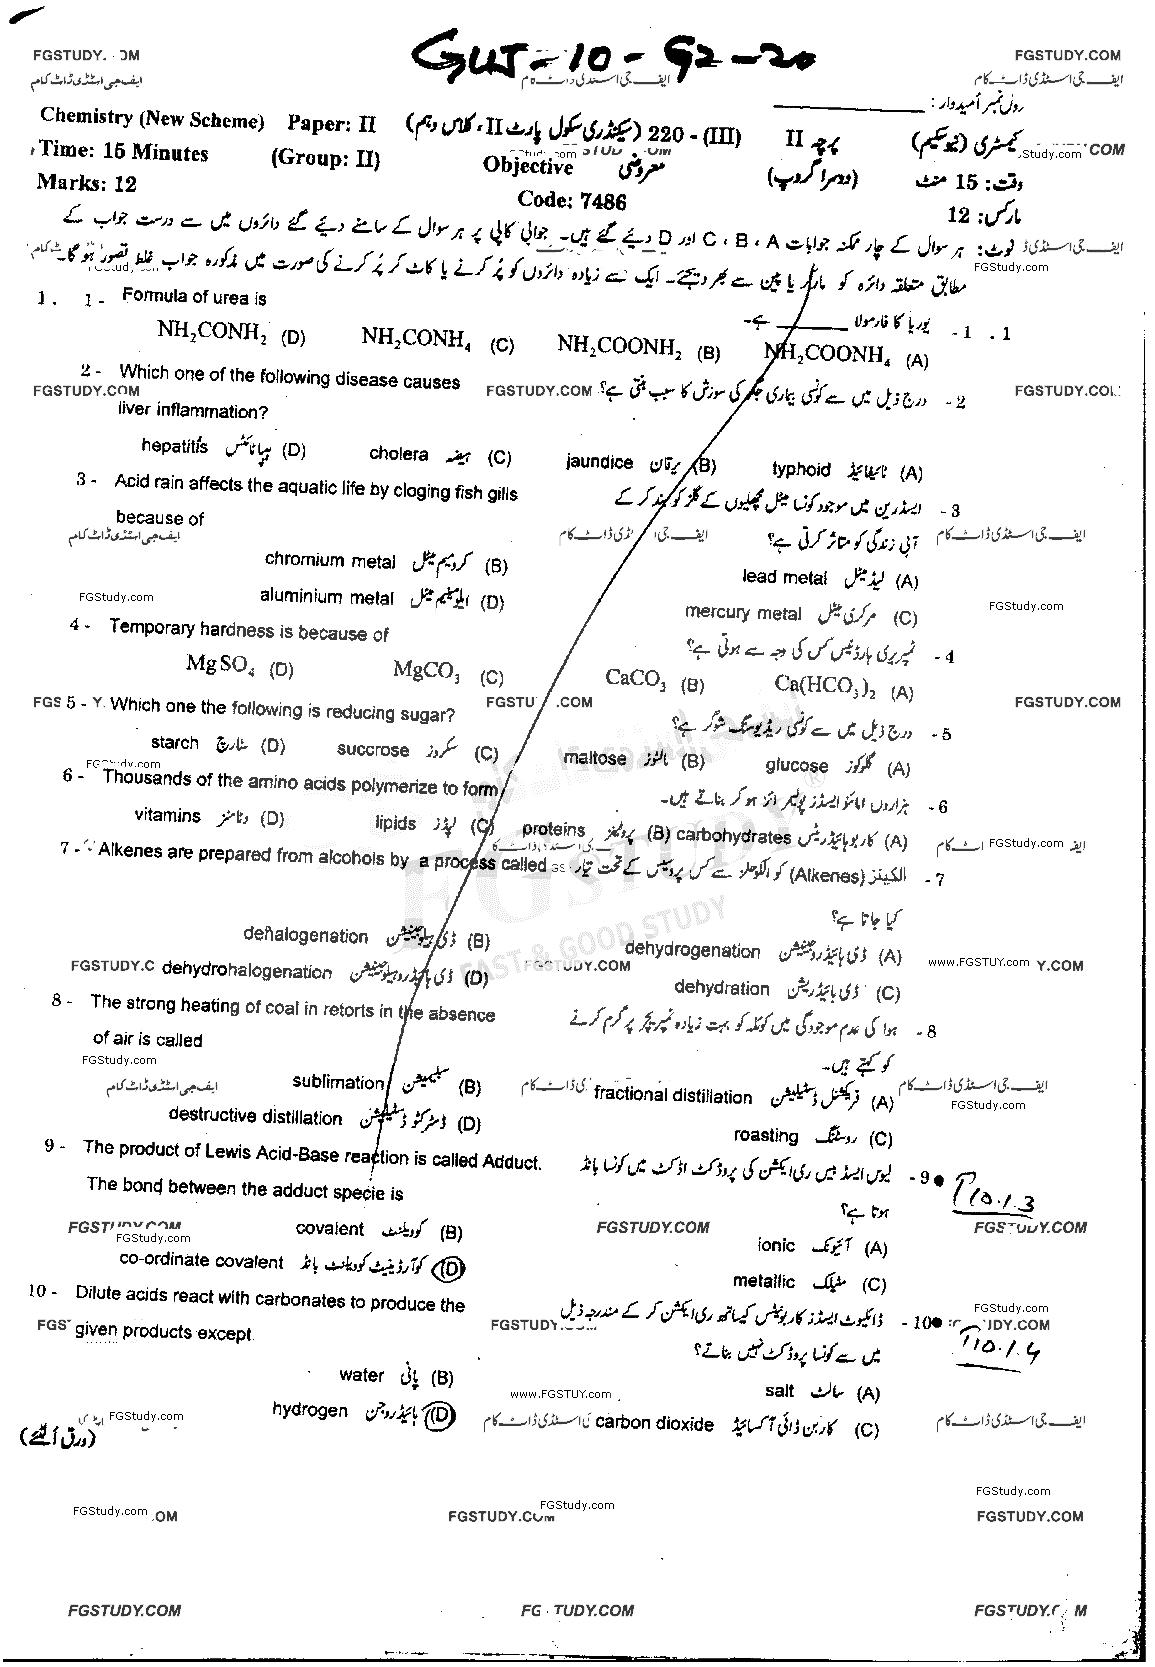 GUJ-10-G2-20
FGSTUDY. OM
FGSTUDY.COM
ایف جی اسٹڈی ڈاٹ کام
ایف جی اسٹڈی ڈاٹ کام
ایف جی اسٹڈی ڈاٹ کام
رول نمبر امیدوار: ____________
Chemistry (New Scheme) Paper: II (سیکنڈری سکول پارٹ II، کلاس دہم) 220 - (III) پرچہ II کیمسٹری (نیو سکیم)
Time: 15 Minutes (Group: II) Objective معروضی (دوسرا گروپ) وقت: 15 منٹ
Marks: 12 Code: 7486 مارکس: 12
نوٹ: ہر سوال کے چار ممکنہ جوابات A ، B ، C اور D دیئے گئے ہیں۔ جوابی کاپی پر ہر سوال کے سامنے دیئے گئے دائروں میں سے درست جواب کے
مطابق متعلقہ دائرہ کو مارکر یا پین سے بھر دیجئے۔ ایک سے زیادہ دائروں کو پُر کرنے یا کاٹ کر پُر کرنے کی صورت میں مذکورہ جواب غلط تصور ہو گا۔
1. 1- Formula of urea is
یوریا کا فارمولا ______ ہے۔ -1 .1
NH₂CONH₂ (D) NH₂CONH₄ (C) NH₂COONH₂ (B) NH₂COONH₄ (A)
2 - Which one of the following disease causes
درج ذیل میں سے کونسی بیماری جگر کی سوزش کا سبب بنتی ہے؟ - 2
liver inflammation?
FGSTUDY.COM FGSTUDY.COM FGSTUDY.COM
hepatitis ہیپاٹائٹس (D) cholera ہیضہ (C) jaundice یرقان (B) typhoid ٹائیفائیڈ (A)
3 - Acid rain affects the aquatic life by cloging fish gills
ایسڈرین میں موجود کونسا میٹل مچھلیوں کے گلز کو بند کر کے - 3
because of
آبی زندگی کو متاثر کرتی ہے؟
chromium metal کرومیم میٹل (B) lead metal لیڈ میٹل (A)
aluminium metal ایلومینیم میٹل (D) mercury metal مرکری میٹل (C)
FGStudy.com FGStudy.com
4 - Temporary hardness is because of
ٹمپریری ہارڈنیس کس کی وجہ سے ہوتی ہے؟ - 4
MgSO₄ (D) MgCO₃ (C) CaCO₃ (B) Ca(HCO₃)₂ (A)
5 - Which one the following is reducing sugar?
درج ذیل میں سے کونسی ریڈیوسنگ شوگر ہے؟ - 5
starch سٹارچ (D) succrose سکروز (C) maltose مالٹوز (B) glucose گلوکوز (A)
6 - Thousands of the amino acids polymerize to form
ہزاروں امائنو ایسڈز پولیمرائز ہو کر بناتے ہیں۔ - 6
vitamins وٹامنز (D) lipids لپڈز (C) proteins پروٹینز (B) carbohydrates کاربوہائیڈریٹس (A)
7 - Alkenes are prepared from alcohols by a process called
الکینز (Alkenes) کو الکوحلز سے کس پروسیس کے تحت تیار - 7
کیا جاتا ہے؟
FGSTUDY
FAST & GOOD STUDY
dehalogenation ڈی ہیلوجینیشن (B) dehydrogenation ڈی ہائیڈروجینیشن (A)
dehydrohalogenation ڈی ہائیڈروہیلوجینیشن (D) dehydration ڈی ہائیڈریشن (C)
8 - The strong heating of coal in retorts in the absence
ہوا کی عدم موجودگی میں کوئلہ کو بہت زیادہ ٹمپریچر پر گرم کرنے - 8
of air is called
کو کہتے ہیں۔
FGStudy.com
sublimation سبلیمیشن (B) fractional distillation فریکشنل ڈسٹیلیشن (A)
destructive distillation ڈسٹرکٹو ڈسٹیلیشن (D) roasting روسٹنگ (C)
9 - The product of Lewis Acid-Base reaction is called Adduct.
لیوس ایسڈ بیس ری ایکشن کی پروڈکٹ اڈکٹ میں کونسا بانڈ - 9
P10.1.3
The bond between the adduct specie is
ہوتا ہے؟
covalent کوویلنٹ (B) ionic آئیونک (A)
co-ordinate covalent کوآرڈینیٹ کوویلنٹ بانڈ (D) metallic میٹلک (C)
10 - Dilute acids react with carbonates to produce the
ڈائلیوٹ ایسڈز کاربونیٹس کیساتھ ری ایکشن کر کے مندرجہ ذیل - 10
10.1.4
given products except.
میں سے کونسا پروڈکٹ نہیں بناتے؟
water پانی (B) salt سالٹ (A)
hydrogen ہائیڈروجن (D) carbon dioxide کاربن ڈائی آکسائیڈ (C)
(ورق اُلٹئے)
FGStudy.com FGStudy.com FGStudy.com
FGSTUDY.COM FGSTUDY.COM
FGSTUDY.COM FG TUDY.COM FGSTUDY. M